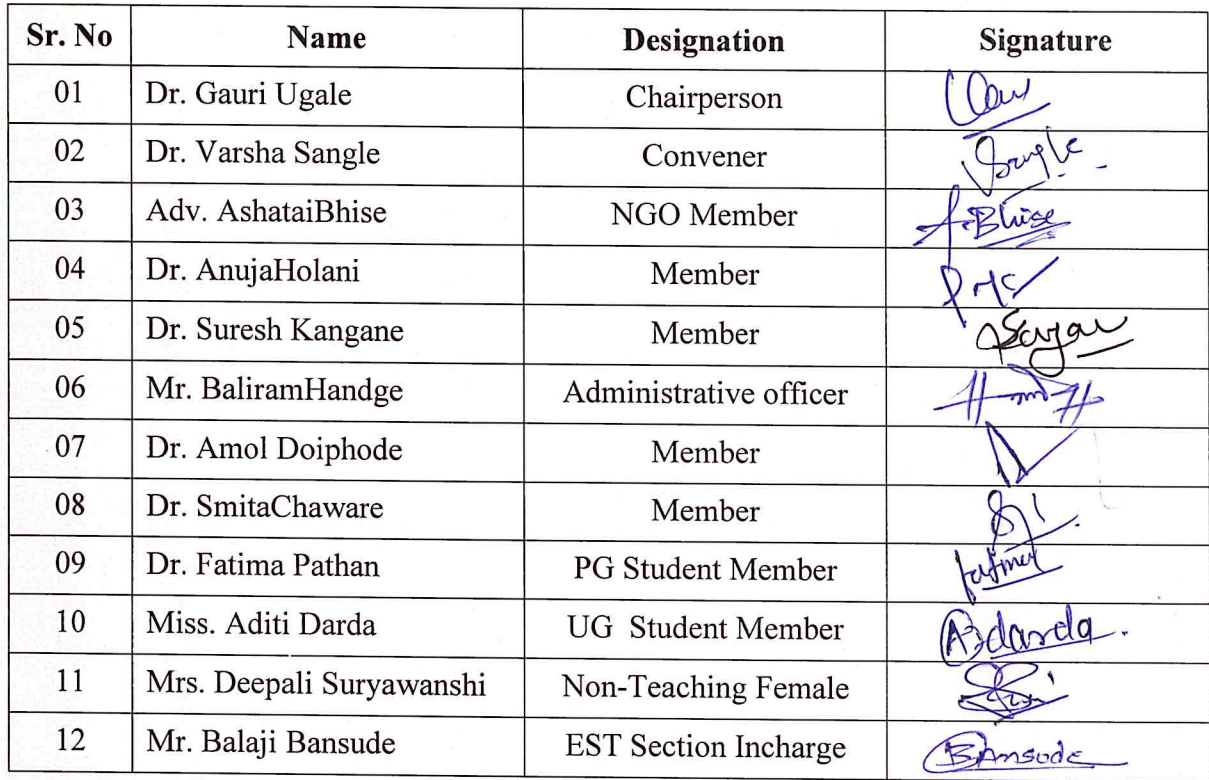 Sr. No Name Designation Signature
01 Dr. Gauri Ugale Chairperson
02 Dr. Varsha Sangle Convener Sangle
03 Adv. AshataiBhise NGO Member A.Bhise
04 Dr. AnujaHolani Member
05 Dr. Suresh Kangane Member
06 Mr. BaliramHandge Administrative officer
07 Dr. Amol Doiphode Member
08 Dr. SmitaChaware Member
09 Dr. Fatima Pathan PG Student Member fatima
10 Miss. Aditi Darda UG Student Member A.darda.
11 Mrs. Deepali Suryawanshi Non-Teaching Female
12 Mr. Balaji Bansude EST Section Incharge Bansude